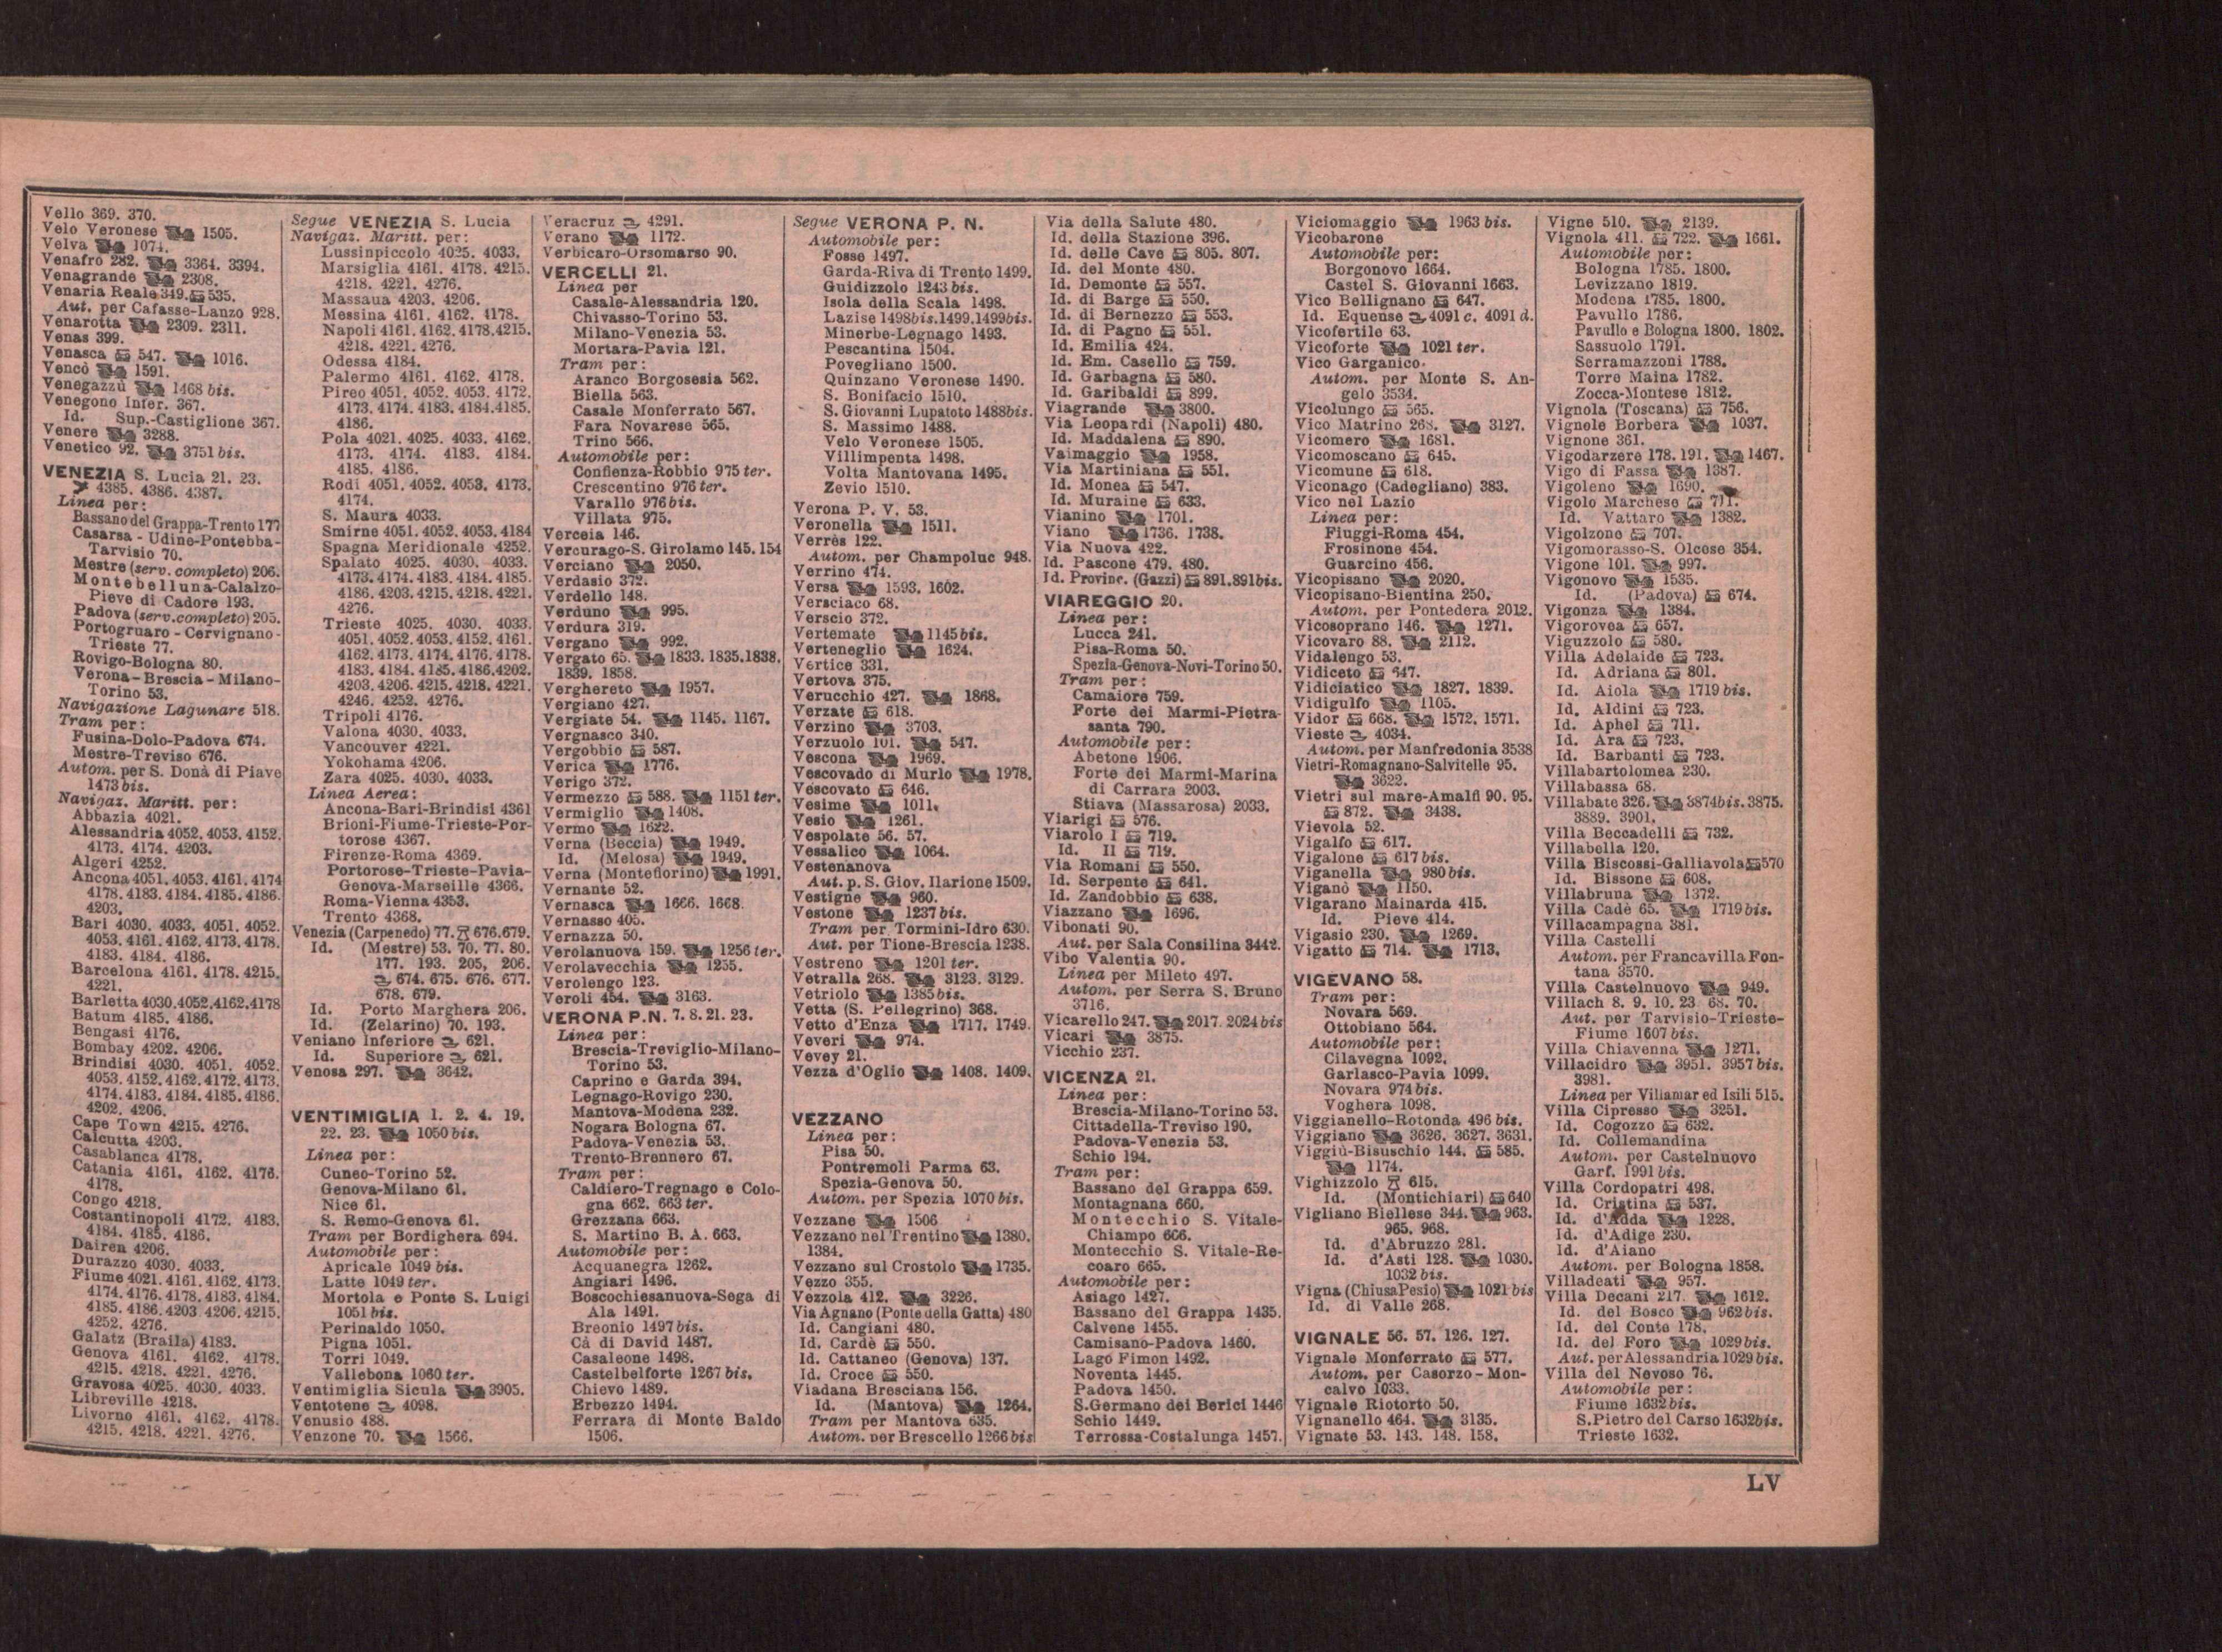 Vello 369. 370.
Velo Veronese 1505.
Velva 1074.
Venafro 282. 3364. 3394.
Venagrande 2308.
Venaria Reale 349. 535.
Aut. per Cafasse-Lanzo 928.
Venarotta 2309. 2311.
Venas 399.
Venasca 547. 1016.
Vencò 1591.
Venegazzù 1468 bis.
Venegono Infer. 367.
Id. Sup.-Castiglione 367.
Venere 3288.
Venetico 92. 3751 bis.
VENEZIA S. Lucia 21. 23.
4385. 4386. 4387.
Linea per:
Bassano del Grappa-Trento 177
Casarsa - Udine-Pontebba-
Tarvisio 70.
Mestre (serv. completo) 206.
Montebelluna-Calalzo-
Pieve di Cadore 193.
Padova (serv. completo) 205.
Portogruaro - Cervignano -
Trieste 77.
Rovigo-Bologna 80.
Verona - Brescia - Milano-
Torino 53.
Navigazione Lagunare 518.
Tram per:
Fusina-Dolo-Padova 674.
Mestre-Treviso 676.
Autom. per S. Donà di Piave
1473 bis.
Navigaz. Maritt. per:
Abbazia 4021.
Alessandria 4052. 4053. 4152.
4173. 4174. 4203.
Algeri 4252.
Ancona 4051. 4053. 4161. 4174
4178. 4183. 4184. 4185. 4186.
4203.
Bari 4030. 4033. 4051. 4052.
4053. 4161. 4162. 4173. 4178.
4183. 4184. 4186.
Barcelona 4161. 4178. 4215.
4221.
Barletta 4030. 4052. 4162. 4178
Batum 4185. 4186.
Bengasi 4176.
Bombay 4202. 4206.
Brindisi 4030. 4051. 4052.
4053. 4152. 4162. 4172. 4173.
4174. 4183. 4184. 4185. 4186.
4202. 4206.
Cape Town 4215. 4276.
Calcutta 4203.
Casablanca 4178.
Catania 4161. 4162. 4176.
4178.
Congo 4218.
Costantinopoli 4172. 4183.
4184. 4185. 4186.
Dairen 4206.
Durazzo 4030. 4033.
Fiume 4021. 4161. 4162. 4173.
4174. 4176. 4178. 4183. 4184.
4185. 4186. 4203 4206. 4215.
4252. 4276.
Galatz (Braila) 4183.
Genova 4161. 4162. 4178.
4215. 4218. 4221. 4276.
Gravosa 4025. 4030. 4033.
Libreville 4218.
Livorno 4161. 4162. 4178.
4215. 4218. 4221. 4276.
Segue VENEZIA S. Lucia
Navigaz. Maritt. per:
Lussinpiccolo 4025. 4033.
Marsiglia 4161. 4178. 4215.
4218. 4221. 4276.
Massaua 4203. 4206.
Messina 4161. 4162. 4178.
Napoli 4161. 4162. 4178. 4215.
4218. 4221. 4276.
Odessa 4184.
Palermo 4161. 4162. 4178.
Pireo 4051. 4052. 4053. 4172.
4173. 4174. 4183. 4184. 4185.
4186.
Pola 4021. 4025. 4033. 4162.
4173. 4174. 4183. 4184.
4185. 4186.
Rodi 4051. 4052. 4053. 4173.
4174.
S. Maura 4033.
Smirne 4051. 4052. 4053. 4184
Spagna Meridionale 4252.
Spalato 4025. 4030. 4033.
4173. 4174. 4183. 4184. 4185.
4186. 4203. 4215. 4218. 4221.
4276.
Trieste 4025. 4030. 4033.
4051. 4052. 4053. 4152. 4161.
4162. 4173. 4174. 4176. 4178.
4183. 4184. 4185. 4186. 4202.
4203. 4206. 4215. 4218. 4221.
4246. 4252. 4276.
Tripoli 4176.
Valona 4030. 4033.
Vancouver 4221.
Yokohama 4206.
Zara 4025. 4030. 4033.
Linea Aerea:
Ancona-Bari-Brindisi 4361
Brioni-Fiume-Trieste-Por-
torose 4367.
Firenze-Roma 4369.
Portorose-Trieste-Pavia-
Genova-Marseille 4366.
Roma-Vienna 4353.
Trento 4368.
Venezia (Carpenedo) 77. 676. 679.
Id. (Mestre) 53. 70. 77. 80.
177. 193. 205, 206.
674. 675. 676. 677.
678. 679.
Id. Porto Marghera 206.
Id. (Zelarino) 70. 193.
Veniano Inferiore 621.
Id. Superiore 621.
Venosa 297. 3642.
VENTIMIGLIA 1. 2. 4. 19.
22. 23. 1050 bis.
Linea per:
Cuneo-Torino 52.
Genova-Milano 61.
Nice 61.
S. Remo-Genova 61.
Tram per Bordighera 694.
Automobile per:
Apricale 1049 bis.
Latte 1049 ter.
Mortola e Ponte S. Luigi
1051 bis.
Perinaldo 1050.
Pigna 1051.
Torri 1049.
Vallebona 1060 ter.
Ventimiglia Sicula 3905.
Ventotene 4098.
Venusio 488.
Venzone 70. 1566.
Veracruz 4291.
Verano 1172.
Verbicaro-Orsomarso 90.
VERCELLI 21.
Linea per
Casale-Alessandria 120.
Chivasso-Torino 53.
Milano-Venezia 53.
Mortara-Pavia 121.
Tram per:
Aranco Borgosesia 562.
Biella 563.
Casale Monferrato 567.
Fara Novarese 565.
Trino 566.
Automobile per:
Confienza-Robbio 975 ter.
Crescentino 976 ter.
Varallo 976 bis.
Villata 975.
Verceia 146.
Vercurago-S. Girolamo 145. 154
Verciano 2050.
Verdasio 372.
Verdello 148.
Verduno 995.
Verdura 319.
Vergano 992.
Vergato 65. 1833. 1835. 1838.
1839. 1858.
Verghereto 1957.
Vergiano 427.
Vergiate 54. 1145. 1167.
Vergnasco 340.
Vergobbio 587.
Verica 1776.
Verigo 372.
Vermezzo 588. 1151 ter.
Vermiglio 1408.
Vermo 1622.
Verna (Beccia) 1949.
Id. (Melosa) 1949.
Verna (Montefiorino) 1991.
Vernante 52.
Vernasca 1666. 1668.
Vernasso 405.
Vernazza 50.
Verolanuova 159. 1256 ter.
Verolavecchia 1255.
Verolengo 123.
Veroli 454. 3163.
VERONA P.N. 7. 8. 21. 23.
Linea per:
Brescia-Treviglio-Milano-
Torino 53.
Caprino e Garda 394.
Legnago-Rovigo 230.
Mantova-Modena 232.
Nogara Bologna 67.
Padova-Venezia 53.
Trento-Brennero 67.
Tram per:
Caldiero-Tregnago e Colo-
gna 662. 663 ter.
Grezzana 663.
S. Martino B. A. 663.
Automobile per:
Acquanegra 1262.
Angiari 1496.
Boscochiesanuova-Sega di
Ala 1491.
Breonio 1497 bis.
Cà di David 1487.
Casaleone 1498.
Castelbelforte 1267 bis.
Chievo 1489.
Erbezzo 1494.
Ferrara di Monte Baldo
1506.
Segue VERONA P. N.
Automobile per:
Fosse 1497.
Garda-Riva di Trento 1499.
Guidizzolo 1243 bis.
Isola della Scala 1498.
Lazise 1498 bis. 1499. 1499 bis.
Minerbe-Legnago 1493.
Pescantina 1504.
Povegliano 1500.
Quinzano Veronese 1490.
S. Bonifacio 1510.
S. Giovanni Lupatoto 1488 bis.
S. Massimo 1488.
Velo Veronese 1505.
Villimpenta 1498.
Volta Mantovana 1495.
Zevio 1510.
Verona P. V. 53.
Veronella 1511.
Verrès 122.
Autom. per Champoluc 948.
Verrino 474.
Versa 1593. 1602.
Versciaco 68.
Verscio 372.
Vertemate 1145 bis.
Verteneglio 1624.
Vertice 331.
Vertova 375.
Verucchio 427. 1868.
Verzate 618.
Verzino 3703.
Verzuolo 101. 547.
Vescona 1969.
Vescovado di Murlo 1978.
Vescovato 646.
Vesime 1011.
Vesio 1261.
Vespolate 56. 57.
Vessalico 1064.
Vestenanova
Aut. p. S. Giov. Ilarione 1509.
Vestigne 960.
Vestone 1237 bis.
Tram per Tormini-Idro 630.
Aut. per Tione-Brescia 1238.
Vestreno 1201 ter.
Vetralla 268. 3123. 3129.
Vetriolo 1385 bis.
Vetta (S. Pellegrino) 368.
Vetto d'Enza 1717. 1749.
Veveri 974.
Vevey 21.
Vezza d'Oglio 1408. 1409.
VEZZANO
Linea per:
Pisa 50.
Pontremoli Parma 63.
Spezia-Genova 50.
Autom. per Spezia 1070 bis.
Vezzane 1506
Vezzano nel Trentino 1380.
1384.
Vezzano sul Crostolo 1735.
Vezzo 355.
Vezzola 412. 3226.
Via Agnano (Ponte della Gatta) 480
Id. Cangiani 480.
Id. Cardè 550.
Id. Cattaneo (Genova) 137.
Id. Croce 550.
Viadana Bresciana 156.
Id. (Mantova) 1264.
Tram per Mantova 635.
Autom. per Brescello 1266 bis
Via della Salute 480.
Id. della Stazione 396.
Id. delle Cave 805. 807.
Id. del Monte 480.
Id. Demonte 557.
Id. di Barge 550.
Id. di Bernezzo 553.
Id. di Pagno 551.
Id. Emilia 424.
Id. Em. Casello 759.
Id. Garbagna 580.
Id. Garibaldi 899.
Viagrande 3800.
Via Leopardi (Napoli) 480.
Id. Maddalena 890.
Vaimaggio 1958.
Via Martiniana 551.
Id. Monea 547.
Id. Muraine 633.
Vianino 1701.
Viano 1736. 1738.
Via Nuova 422.
Id. Pascone 479. 480.
Id. Provinc. (Gazzi) 891. 891 bis.
VIAREGGIO 20.
Linea per:
Lucca 241.
Pisa-Roma 50.
Spezia-Genova-Novi-Torino 50.
Tram per:
Camaiore 759.
Forte dei Marmi-Pietra-
santa 790.
Automobile per:
Abetone 1906.
Forte dei Marmi-Marina
di Carrara 2003.
Stiava (Massarosa) 2033.
Viarigi 576.
Viarolo I 719.
Id. II 719.
Via Romani 550.
Id. Serpente 641.
Id. Zandobbio 638.
Viazzano 1696.
Vibonati 90.
Aut. per Sala Consilina 3442.
Vibo Valentia 90.
Linea per Mileto 497.
Autom. per Serra S. Bruno
3716.
Vicarello 247. 2017. 2024 bis
Vicari 3875.
Vicchio 237.
VICENZA 21.
Linea per:
Brescia-Milano-Torino 53.
Cittadella-Treviso 190.
Padova-Venezia 53.
Schio 194.
Tram per:
Bassano del Grappa 659.
Montagnana 660.
Montecchio S. Vitale-
Chiampo 666.
Montecchio S. Vitale-Re-
coaro 665.
Automobile per:
Asiago 1427.
Bassano del Grappa 1435.
Calvene 1455.
Camisano-Padova 1460.
Lago Fimon 1492.
Noventa 1445.
Padova 1450.
S. Germano dei Berici 1446
Schio 1449.
Terrossa-Costalunga 1457.
Viciomaggio 1963 bis.
Vicobarone
Automobile per:
Borgonovo 1664.
Castel S. Giovanni 1663.
Vico Bellignano 647.
Id. Equense 4091 c. 4091 d.
Vicofertile 63.
Vicoforte 1021 ter.
Vico Garganico
Autom. per Monte S. An-
gelo 3534.
Vicolungo 565.
Vico Matrino 268. 3127.
Vicomero 1681.
Vicomoscano 645.
Vicomune 618.
Viconago (Cadegliano) 383.
Vico nel Lazio
Linea per:
Fiuggi-Roma 454.
Frosinone 454.
Guarcino 456.
Vicopisano 2020.
Vicopisano-Bientina 250.
Autom. per Pontedera 2012.
Vicosoprano 146. 1271.
Vicovaro 88. 2112.
Vidalengo 53.
Vidiceto 647.
Vidiciatico 1827. 1839.
Vidigulfo 1105.
Vidor 668. 1572. 1571.
Vieste 4034.
Autom. per Manfredonia 3538
Vietri-Romagnano-Salvitelle 95.
3622.
Vietri sul mare-Amalfi 90. 95.
872. 3438.
Vievola 52.
Vigalfo 617.
Vigalone 617 bis.
Viganella 980 bis.
Viganò 1150.
Vigarano Mainarda 415.
Id. Pieve 414.
Vigasio 230. 1269.
Vigatto 714. 1713.
VIGEVANO 58.
Tram per:
Novara 569.
Ottobiano 564.
Automobile per:
Cilavegna 1092.
Garlasco-Pavia 1099.
Novara 974 bis.
Voghera 1098.
Viggianello-Rotonda 496 bis.
Viggiano 3626. 3627. 3631.
Viggiù-Bisuschio 144. 585.
1174.
Vighizzolo 615.
Id. (Montichiari) 640
Vigliano Biellese 344. 963.
965. 968.
Id. d'Abruzzo 281.
Id. d'Asti 128. 1030.
1032 bis.
Vigna (Chiusa Pesio) 1021 bis
Id. di Valle 268.
VIGNALE 56. 57. 126. 127.
Vignale Monferrato 577.
Autom. per Casorzo - Mon-
calvo 1033.
Vignale Riotorto 50.
Vignanello 464. 3135.
Vignate 53. 143. 148. 158.
Vigne 510. 2139.
Vignola 411. 722. 1661.
Automobile per:
Bologna 1785. 1800.
Levizzano 1819.
Modena 1785. 1800.
Pavullo 1786.
Pavullo e Bologna 1800. 1802.
Sassuolo 1791.
Serramazzoni 1788.
Torre Maina 1782.
Zocca-Montese 1812.
Vignola (Toscana) 756.
Vignole Borbera 1037.
Vignone 361.
Vigodarzere 178. 191. 1467.
Vigo di Fassa 1387.
Vigoleno 1690.
Vigolo Marchese 711.
Id. Vattaro 1382.
Vigolzone 707.
Vigomorasso-S. Olcese 354.
Vigone 101. 997.
Vigonovo 1535.
Id. (Padova) 674.
Vigonza 1384.
Vigorovea 657.
Viguzzolo 580.
Villa Adelaide 723.
Id. Adriana 801.
Id. Aiola 1719 bis.
Id. Aldini 723.
Id. Aphel 711.
Id. Ara 723.
Id. Barbanti 723.
Villabartolomea 230.
Villabassa 68.
Villabate 326. 3874 bis. 3875.
3889. 3901.
Villa Beccadelli 732.
Villabella 120.
Villa Biscossi-Galliavola 570
Id. Bissone 608.
Villabruna 1372.
Villa Cadè 65. 1719 bis.
Villacampagna 381.
Villa Castelli
Autom. per Francavilla Fon-
tana 3570.
Villa Castelnuovo 949.
Villach 8. 9. 10. 23 68. 70.
Aut. per Tarvisio-Trieste-
Fiume 1607 bis.
Villa Chiavenna 1271.
Villacidro 3951. 3957 bis.
3981.
Linea per Villamar ed Isili 515.
Villa Cipresso 3251.
Id. Cogozzo 632.
Id. Collemandina
Autom. per Castelnuovo
Garf. 1991 bis.
Villa Cordopatri 498.
Id. Cristina 537.
Id. d'Adda 1228.
Id. d'Adige 230.
Id. d'Aiano
Autom. per Bologna 1858.
Villadeati 957.
Villa Decani 217. 1612.
Id. del Bosco 962 bis.
Id. del Conte 178.
Id. del Foro 1029 bis.
Aut. per Alessandria 1029 bis.
Villa del Nevoso 76.
Automobile per:
Fiume 1632 bis.
S. Pietro del Carso 1632 bis.
Trieste 1632.
LV